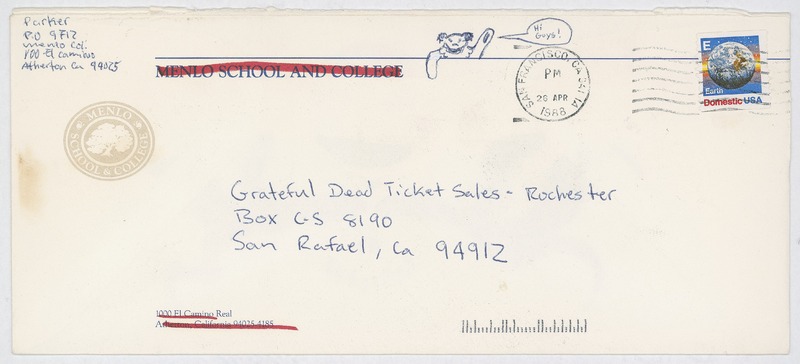 Parker
P.O 9712
Menlo Col.
1000 El Camino
Atherton Ca 94025
Hi Guys!
MENLO SCHOOL AND COLLEGE
SAN FRANCISCO, CA 941 1A
PM
26 APR
1988
E
Earth
Domestic USA
MENLO
SCHOOL & COLLEGE
Grateful Dead Ticket Sales - Rochester
Box GS 8190
San Rafael, Ca 94912
1000 El Camino Real
Atherton, California 94025-4185